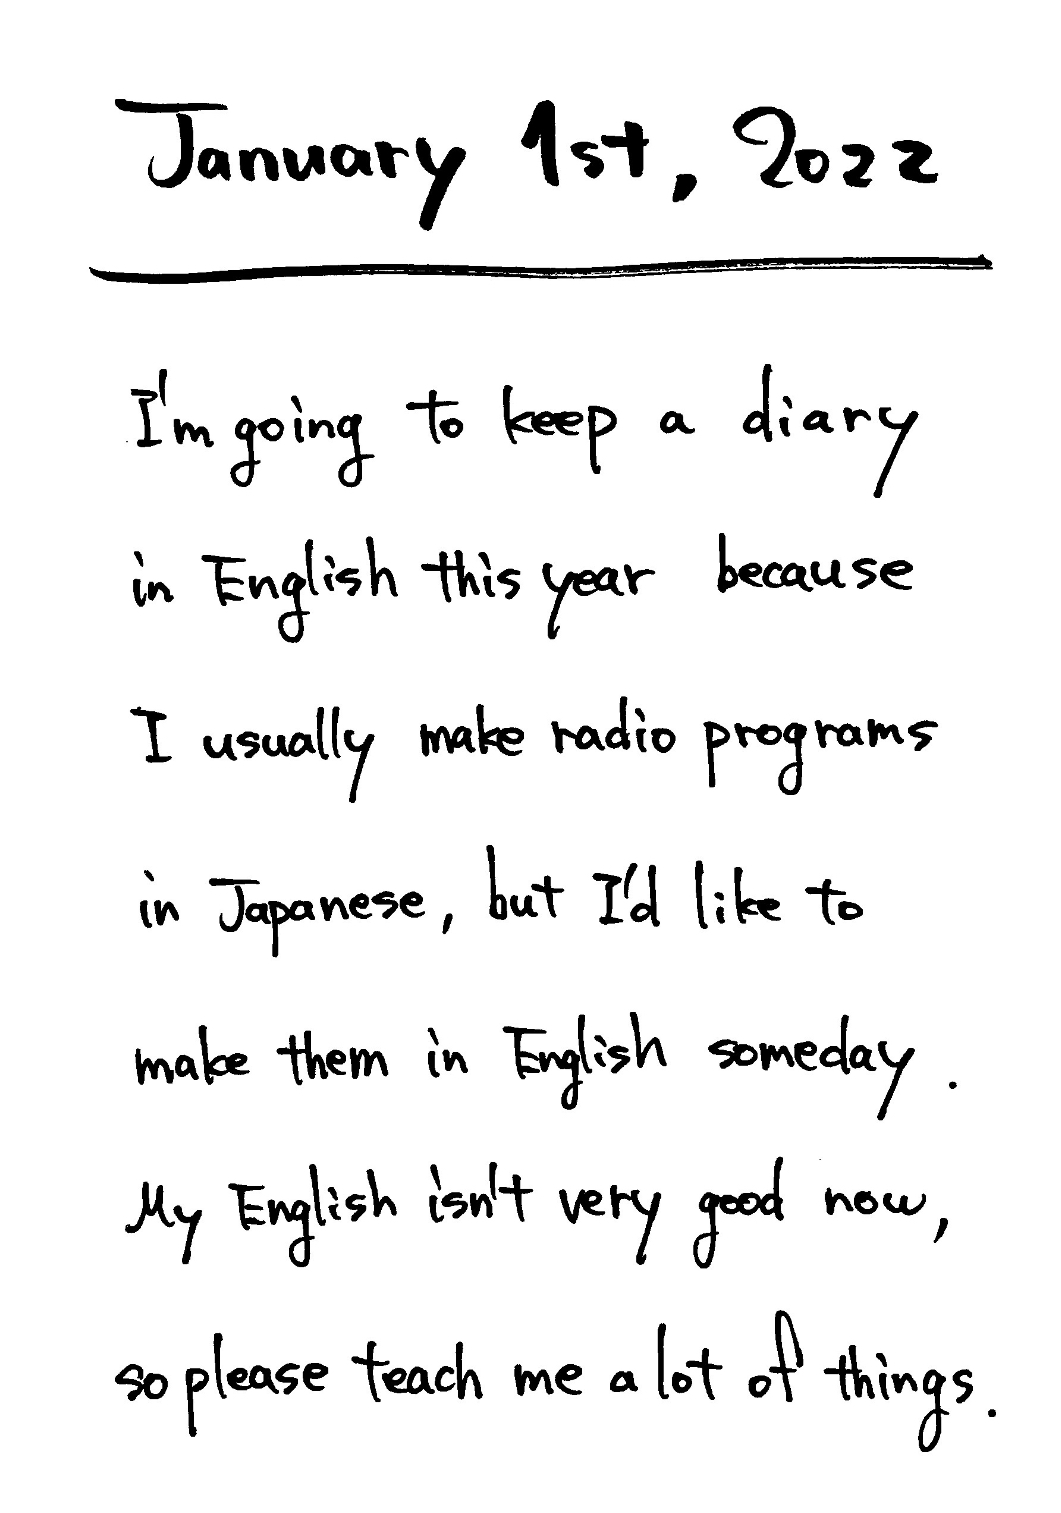 January 1st, 2022
I'm going to keep a diary
in English this year because
I usually make radio programs
in Japanese, but I'd like to
make them in English someday.
My English isn't very good now,
so please teach me a lot of things.